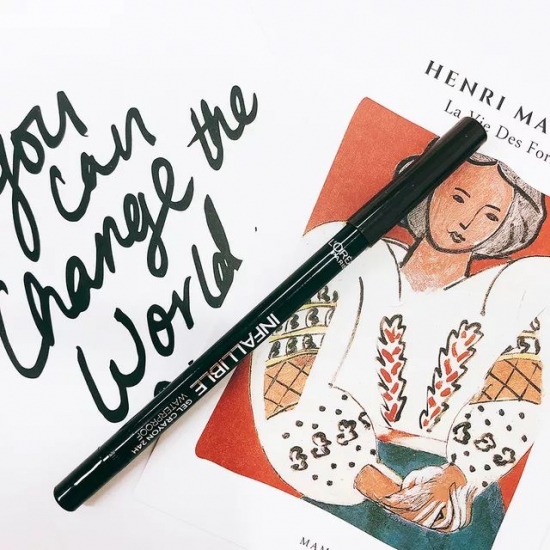 you
can
Change the
World.
HENRI MA
La Vie Des For
L'ORÉ
PARIS
INFALLIBLE
GEL CRAYON 24H
WATERPROOF
MAM